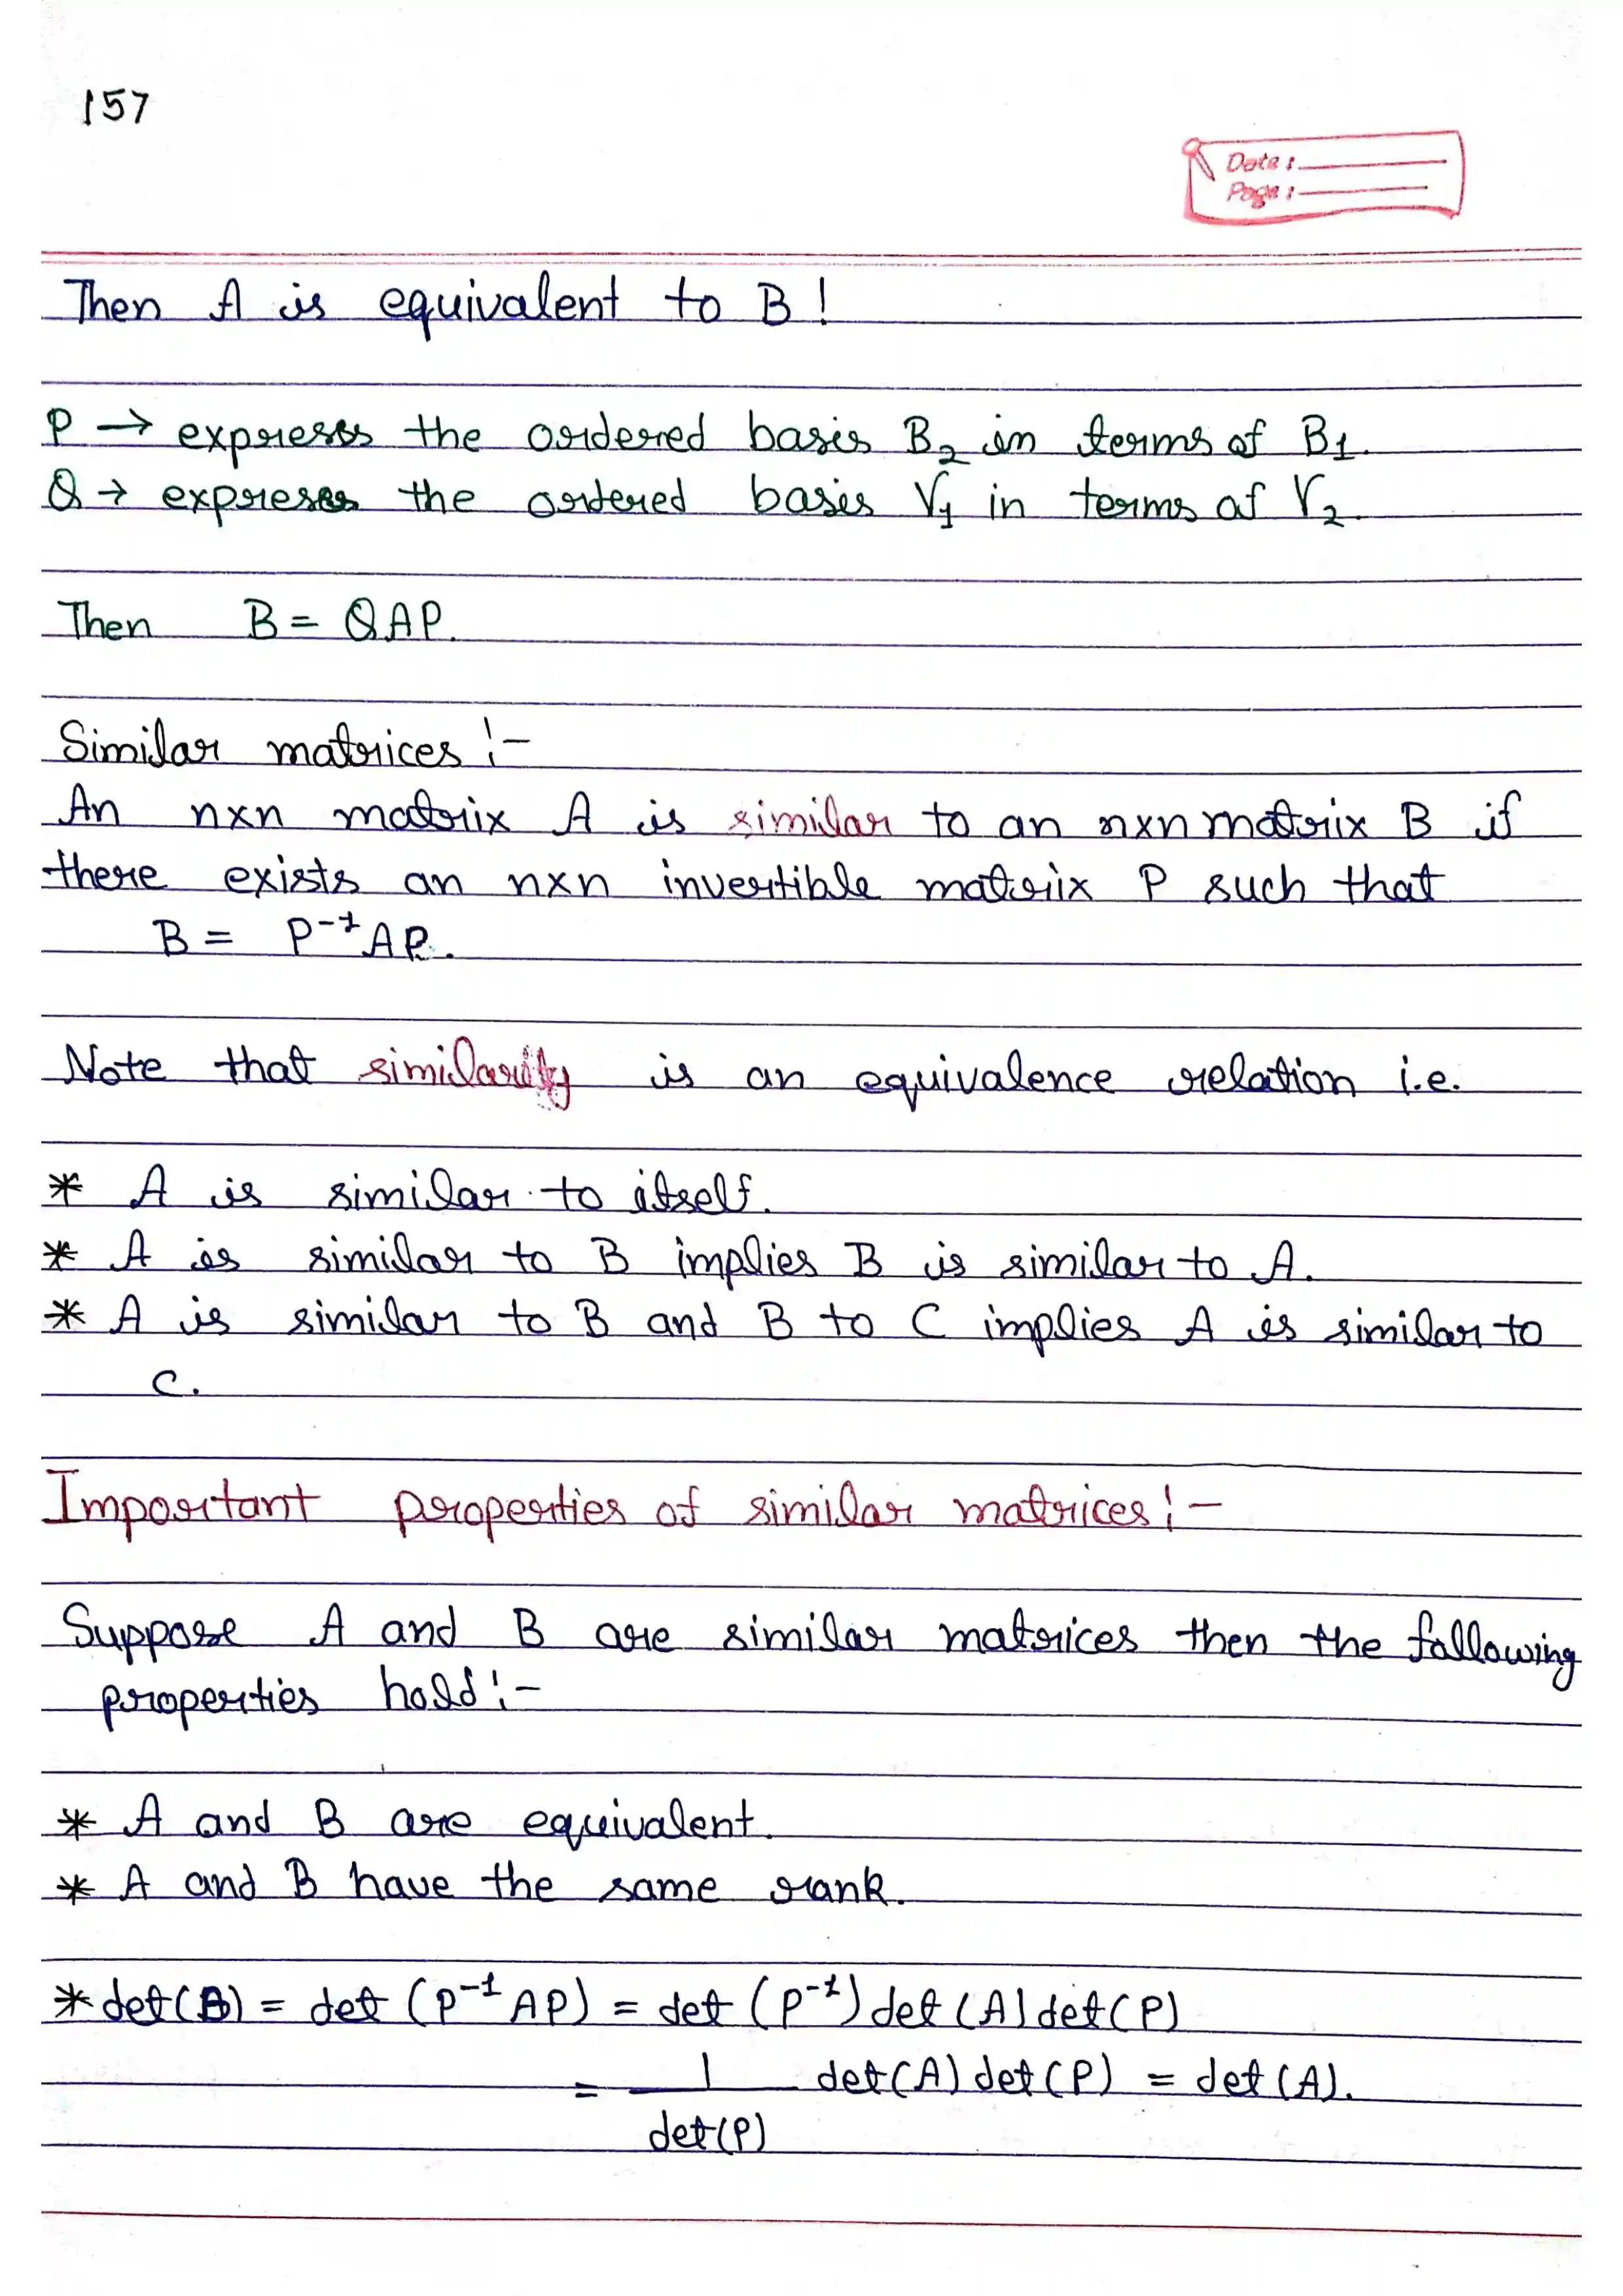 157
Date:
Page:
Then A is equivalent to B!
P → express the ordered basis B₂ in terms of B₁.
Q → express the ordered basis V₁ in terms of V₂.
Then B = QAP.
Similar matrices :-
An n×n matrix A is similar to an n×n matrix B if
there exists an n×n invertible matrix P such that
B = P⁻¹AP.
Note that similarity is an equivalence relation i.e.
* A is similar to itself.
* A is similar to B implies B is similar to A.
* A is similar to B and B to C implies A is similar to
C.
Important properties of similar matrices :-
Suppose A and B are similar matrices then the following
properties hold :-
* A and B are equivalent.
* A and B have the same rank.
* det(B) = det (P⁻¹AP) = det (P⁻¹) det (A) det (P)
= 1/det(P) det(A) det(P) = det(A).